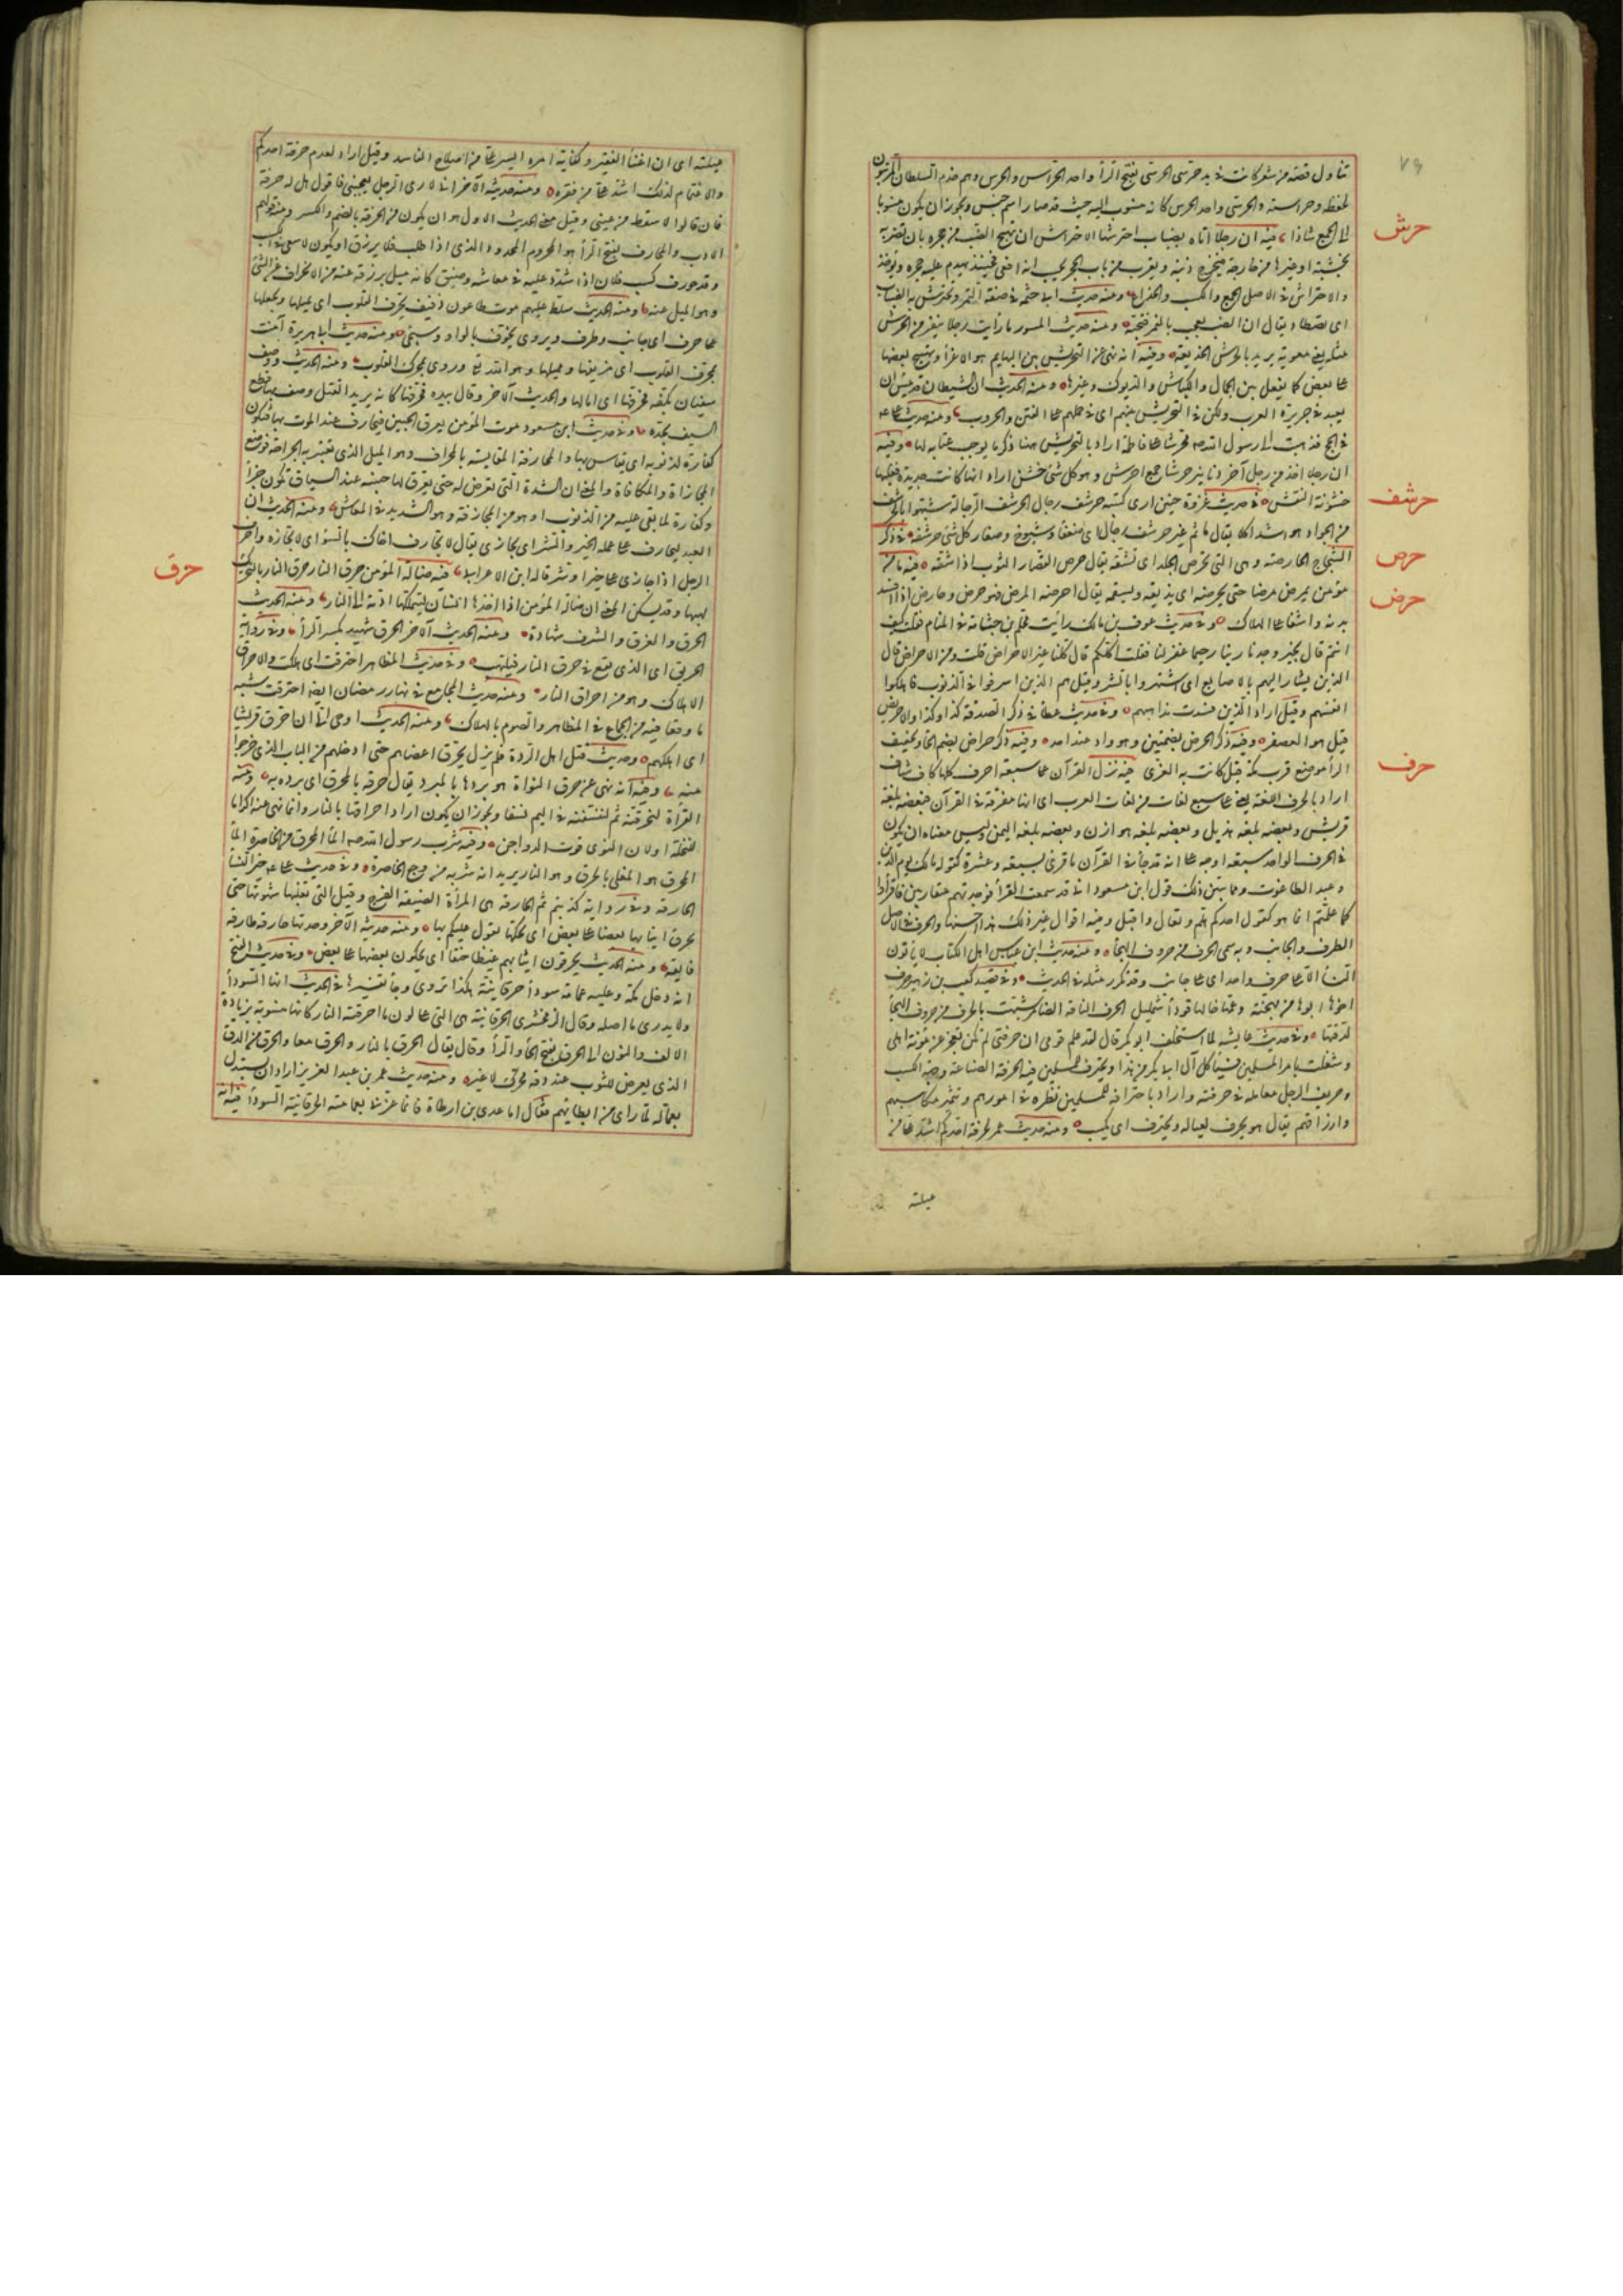 ٧٩
تناول قصة من شعر كانت في يد حرسي الحرسي بفتح الرأ واحد الحراس والحرس وهم خدم السلطان المرتبون
لحفظه وحراسته والحرسي واحد الحرس كانه منسوب اليه حيث قد صار اسم جنس ويجوز ان يكون منسوبا
حرش
الى الجمع شاذا فيه ان رجلا اتاه بضباب احترشها الاحتراش ان يهيج الضب من جحره بان تضربه
بخشبة او غيرها من خارجه فيخرج ذنبه ويقرب من باب الجحر يحسب انه افعى فحينئذ يهدم عليه جحره ويؤخذ
والاحتراش في الاصل الجمع والكسب والخداع ومنه حديث ابي حثمة في صفة التمر وتحترش به الضباب
اى تصطاد يقال ان الضب يعجب بالتمر فيحبه ومنه حديث المسور ما رأيت رجلا ينفر من الحرش
مثله يعني معوية يريد بالحرش الخديعة وفيه انه نهى عن التحريش بين البهايم هو الاغرأ وتهييج بعضها
على بعض كما يفعل بين الجمال والكباش والديوك وغيرها ومنه الحديث ان الشيطان قد يئس ان
يعبد في جزيرة العرب ولكن في التحريش بينهم اى في حملهم على الفتن والحروب ومنه حديث على
في الحج فذهبت الى رسول الله محرشا على فاطمة اراد بالتحريش ههنا ذكر ما يوجب عتابه لها وفيه
ان رجلا اخذ من رجل آخر دنانير حرشا جمع احرش وهو كل شئ خشن اراد انها كانت جديدة فعليها
حرشف
خشونة النقش في حديث غزوة حنين ارى كتيبة حرشف رجال الحرشف الرجالة شبهوا بالحرشف
من الجراد وهو اشد اكلا يقال ما ثم غير حرشف رجال اى ضعفا وشيوخ وصغار كل شئ حرشفه في ذكر
حرص
الشجاج الحارصة وهى التي تحرص الجلد اى تشقه يقال حرص القصار الثوب اذا شقه فيه ما من
حرض
مؤمن يمرض مرضا حتى يحرضه اى يذيقه ويسقمه يقال احرضه المرض فهو حرض وحارض اذا افسد
بدنه واشفى على الهلاك وفي حديث عوف بن مالك رأيت محلم بن جثامة في المنام فقلت كيف
انتم قال بخير وجدنا ربنا رحيما غفر لنا فقلت اكلكم قال كلنا غير الاحراض قلت ومن الاحراض قال
الذين يشار اليهم بالاصابع اى اشتهروا بالشر وقيل هم الذين اسرفوا في الذنوب فاهلكوا
انفسهم وقيل اراد الذين فسدت مذاهبهم وفي حديث عطأ في ذكر الصدقة كذا وكذا والاحريض
قيل هو العصفر وفيه ذكر الحرض بضمتين وهو واد عند احد وفيه ذكر حراض بضم الحأ وتخفيف
حرف
الرأ موضع قرب مكة قيل كانت به العزى فيه نزل القرآن على سبعة احرف كلها كاف شاف
اراد بالحرف اللغة يعني على سبع لغات من لغات العرب اى انها مفرقة في القرآن فبعضه بلغة
قريش وبعضه بلغة هذيل وبعضه بلغة هوازن وبعضه بلغة اليمن وليس معناه ان يكون
في الحرف الواحد سبعة اوجه على انه قد جأ في القرآن ما قرئ بسبعة وعشرة كقوله مالك يوم الدين
وعبد الطاغوت ومما يبين ذلك قول ابن مسعود اني قد سمعت القرأ فوجدتهم متقاربين فاقرأوا
كما علمتم انما هو كقول احدكم هلم وتعال واقبل وفيه اقوال غير ذلك هذا احسنها والحرف في الاصل
الطرف والجانب وبه سمى الحرف من حروف الهجأ ومنه حديث ابن عباس اهل الكتاب لا يأتون
النسأ الا على حرف واحد اى على جانب وقد تكرر مثله في الحديث وفي قصيد كعب بن زهير حرف
اخوها ابوها من مهجنة وعمها خالها قودأ شمليل الحرف الناقة الضامر شبهت بالحرف من حروف الهجأ
لدقتها وفي حديث عايشة لما استخلف ابو بكر قال لقد علم قومى ان حرفتي لم تكن تعجز عن مؤنة اهلى
وشغلت بامر المسلمين فسيأكل آل ابى بكر من هذا ويحترف للمسلمين فيه الحرفة الصناعة وجهة الكسب
وحريف الرجل معامله في حرفته واراد باحترافه للمسلمين نظره في امورهم وتثمير مكاسبهم
وارزاقهم يقال هو يحرف لعياله ويحترف اى يكسب ومنه حديث عمر لحرفة احدكم اشد على من
عيلته
عيلته اى ان اغنأ الفقير وكفايته امره ايسر على من اصلاح الفاسد وقيل اراد لعدم حرفة احدكم
والاغتمام لذلك اشد على من فقره ومنه حديثه الآخر اني لارى الرجل يعجبني فاقول هل له حرفة
فان قالوا لا سقط من عيني وقيل معنى الحديث الاول هو ان يكون من الحرفة بالضم والكسر ومنه قولهم
الادب والمحارف بفتح الرأ هو المحروم المحدود الذى اذا طلب فلا يرزق او يكون لا يسعى في الكسب
وقد حورف كسب فلان اذا شدد عليه في معاشه وضيق كانه ميل برزقه عنه من الانحراف عن الشئ
وهو الميل عنه ومنه الحديث سلط عليهم موت طاعون ذفيف يحرف القلوب اى يميلها ويجعلها
على حرف اى جانب وطرف ويروى يحوف بالواو وسيجئ ومنه حديث ابى هريرة آمنت
بمحرف القلوب اى مزيغها ومميلها وهو الله تع وروى بمحرك القلوب ومنه الحديث ووصف
سفيان بكفه فحرفها اى امالها والحديث الآخر وقال بيده فحرفها كانه يريد القتل ووصف بها قطع
السيف بحده وفي حديث ابن مسعود موت المؤمن بعرق الجبين فيحارف عند الموت بها فتكون
كفارة لذنوبه اى يقايس بها والمحارفة المقايسة بالمحراف وهو الميل الذى تختبر به الجراحة فوضع
المجازاة والمكافاة والمعنى ان الشدة التي تعرض له حتى يعرق لها جبينه عند السياق تكون جزأ
وكفارة لما بقى عليه من الذنوب او هو من المحارفة وهو التشديد في المعاش ومنه الحديث ان
العبد ليحارف على عمله الخير والشر اى يجازى يقال لا تحارف اخاك بالسؤ اى لا تجازه واحرف
حرق
الرجل اذا جازى على خير او شر قاله ابن الاعرابى فيه ضالة المؤمن حرق النار حرق النار بالتحريك
لهبها وقد يسكن المعنى ان ضالة المؤمن اذا اخذها انسان ليتملكها ادته الى النار ومنه الحديث
الحرق والغرق والشرق شهادة ومنه الحديث الآخر الحرق شهيد بكسر الرأ وفي رواية
الحريق اى الذى يقع في حرق النار فيلتهب وفي حديث المظاهر احترقت اى هلكت والاحراق
الاهلاك وهو من احراق النار ومنه حديث المجامع في نهار رمضان ايضا احترقت شبه
ما وقعا فيه من الجماع في المظاهر والصوم بالهلاك ومنه الحديث اوحى الى ان احرق قريشا
اى اهلكهم وحديث قتل اهل الردة فلم يزل يحرق اعضاهم حتى ادخلهم من الباب الذى خرجوا
منه وفيه انه نهى عن حرق النواة هو بردها بالمبرد يقال حرقه بالمحرق اى برده به ومنه
القرأة لنحرقنه ثم لننسفنه في اليم نسفا ويجوز ان يكون اراد احراقها بالنار وانما نهى عنه اكراما
للنخلة او لان النوى قوت الدواجن وفيه شرب رسول الله المأ المحرق من الخاصرة المأ
المحرق هو المغلى بالحرق وهو النار يريد انه شربه من وجع الخاصرة وفي حديث على خير النسأ
الحارقة وفي رواية كذبتم ثم الحارقة هى المرأة الضيقة الفرج وقيل التي تغلبها شهوتها حتى
تحرق انيابها بعضها على بعض اى تحكها يقول عليكم بها ومنه حديثه الآخر وجدتها حارقة طارقة
فايقة ومنه الحديث يحرقون انيابهم غيظا وحنقا اى يحكون بعضها على بعض وفي حديث الفتح
انه دخل مكة وعليه عمامة سودأ حرقانية هكذا تروى وجأ تفسيرها في الحديث انها السودأ
ولا يدرى ما اصله وقال الزمخشرى الحرقانية هى التي على لون ما احرقته النار كانها منسوبة بزيادة
الالف والنون الى الحرق بفتح الحأ والرأ وقال يقال الحرق بالنار والحرق معا والحرق من الدق
الذى يعرض للثوب عند دقه محرك لا غير ومنه حديث عمر بن عبد العزيز اراد ان يستبدل
بعماله لما راى من ابطائهم فقال اما عدى بن ارطاة فانما غرني بعمامته الحرقانية السودأ فيه انه